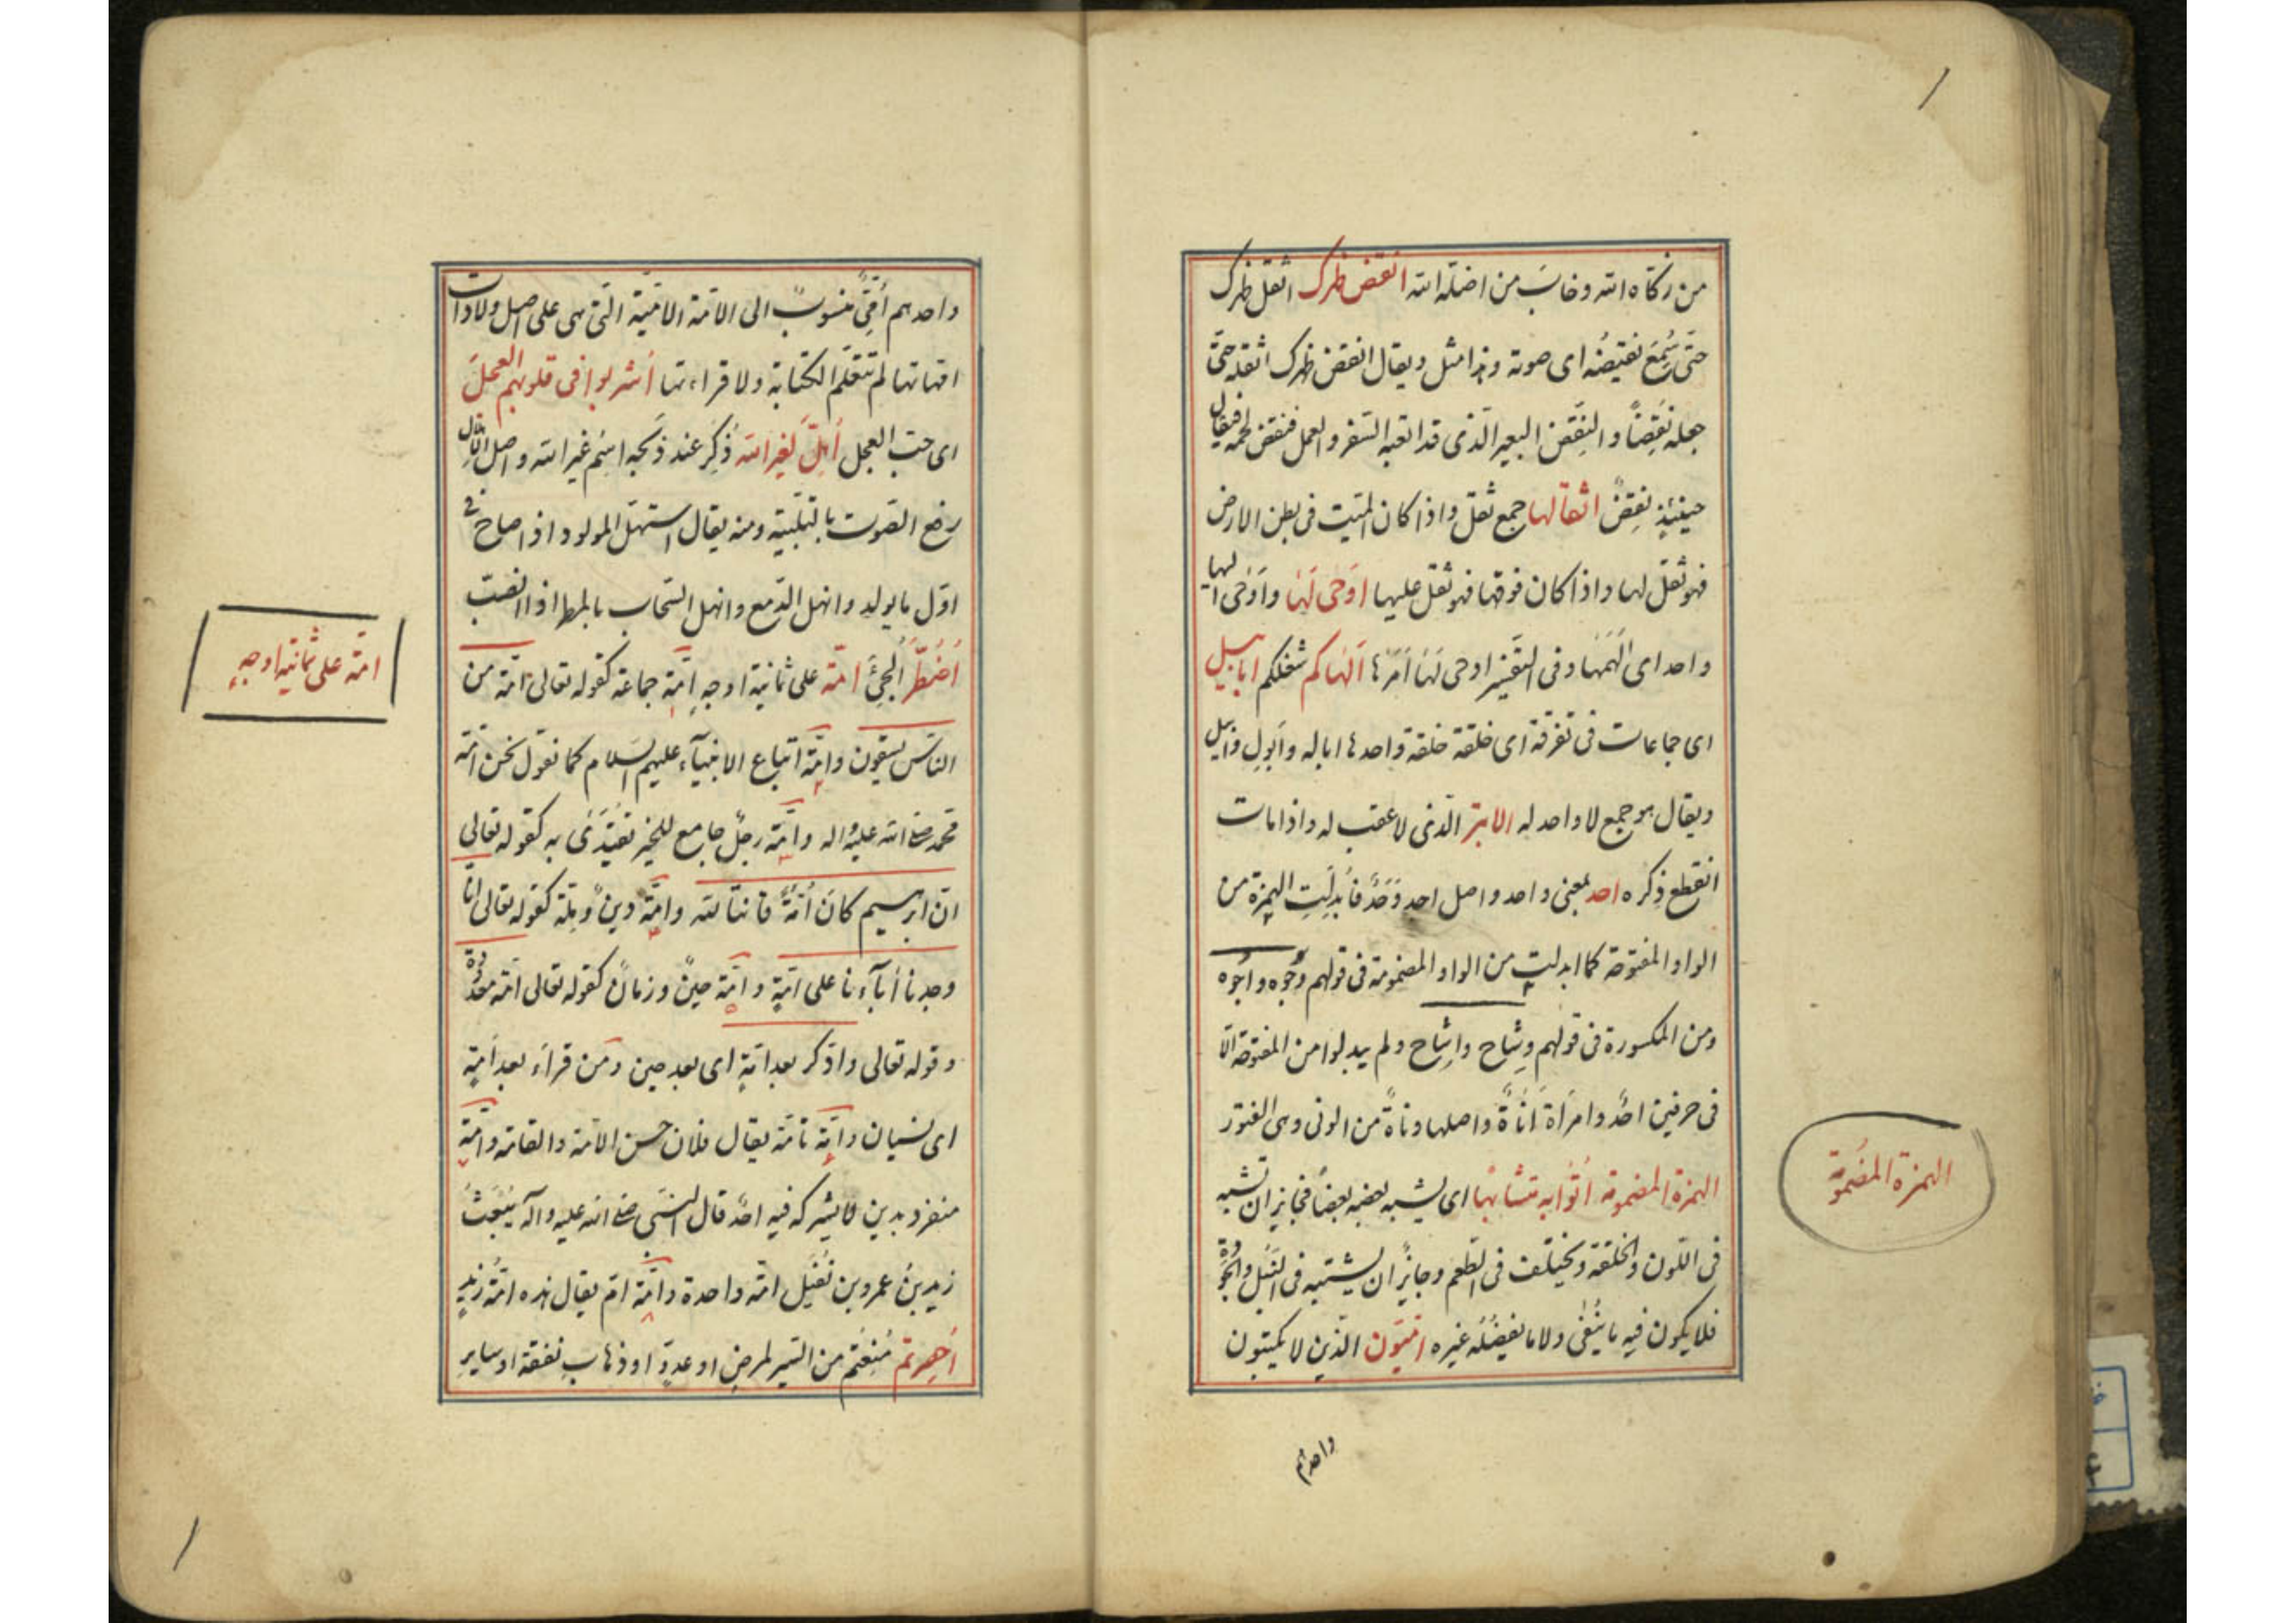 من زكّاه الله وخابَ من اضلّه الله انقض ظهرك اثقل ظهرك
حتّى سُمِعَ نقيضُه اى صوته وهذا مثل ويقال انقض ظهرك اثقله حتّى
جعله نَقِضًا والنِّقض البعير الّذى قد اتعبه السّفر والعمل فنقض لحمه فيقال
حينئذٍ نِقِضٌ اثقالها جمع ثقل واذا كان الميّت فى بطن الارض
فهو ثقل لها واذا كان فوقها فهو ثقل عليها اوحى لها واوحى اليها
واحد اى الهمها وفى التّفسير اوحى لها امرها الهاكم شغلكم ابابيل
اى جماعات فى تفرقة اى خلقة خلقة واحدها اباله وابّول وابّيل
ويقال هو جمع لا واحد له الابتر الّذى لا عقب له واذا مات
انقطع ذكره احد بمعنى واحد واصل احد وَحَدٌ فأبدلت الهمزة من
الواو المفتوحة كما ابدلت من الواو المضمومة فى قولهم وُجوه واُجوه
ومن المكسورة فى قولهم وِشاح واِشاح ولم يبدلوا من المفتوحة الّا
فى حرفين احدٌ وامرَاة اَناةٌ واصلها وناةٌ من الونى وهى الفتور
الهمزة المضمومة اُتوا به متشابهًا اى يشبه بعضه بعضًا فجايز ان تشبه
فى اللّون والخلقة ويختلف فى الطّعم وجايزٌ ان يشتبه فى النّبل والجودة
فلا يكون فيه ما يُنفٰى ولا ما يفضُله غيره امّيّون الّذين لا يكتبون
واحدهم
الهمزة المضمومة
واحدهم اُمّىٌّ منسوبٌ الى الامّة الامّيّة الّتى هى على اصل ولادات
امّهاتها لم تتعلّم الكتابة ولا قراءتها اُشربوا فى قلوبهم العجل
اى حبّ العجل اُهِلَّ لغير الله ذُكِرَ عند ذبحه اسم غير الله واصل الاهلال
رفع الصّوت بالتّلبية ومنه يقال استهلّ المولود اذا صاح فى
اوّل ما يولد وانهل الدّمع وانهل السّحاب بالمطر اذا انصبّ
اُضطرّ اُلجِئَ امّة على ثمانية اوجهٍ امّة جماعة كقوله تعالى امّة من
النّاس يسقون وامّة اتباع الانبيآء عليهم السّلام كما نقول نحن امّة
محمّد صلى الله عليه واله وامّة رجلٌ جامع للخير يُقتَدى به كقوله تعالى
انّ ابرهيم كان اُمّةً قانتًا لله وامّة دينٌ وملّة كقوله تعالى انّا
وجدنا اٰبآءنا على امّةٍ وامّة حينٌ وزمانٌ كقوله تعالى امّة معدودة
وقوله تعالى وادّكر بعد امّةٍ اى بعد حين ومن قراَء بعد اَمَةٍ
اى نسيان وامّة قامة يقال فلان حسن الامّة والقامة وامّة
منفرد بدين لا يشركه فيه احدٌ قال النّبىّ صلى الله عليه وآله يُبعَثُ
زيد بنُ عمرو بن نُفَيل امّة واحدة وامّة امّ يقال هذه امّة زيدٍ
اُحصِرتم مُنِعتُم من السّير لمرضٍ او عدوٍّ او ذهاب نفقة او ساير
امّة على ثمانية اوجهٍ